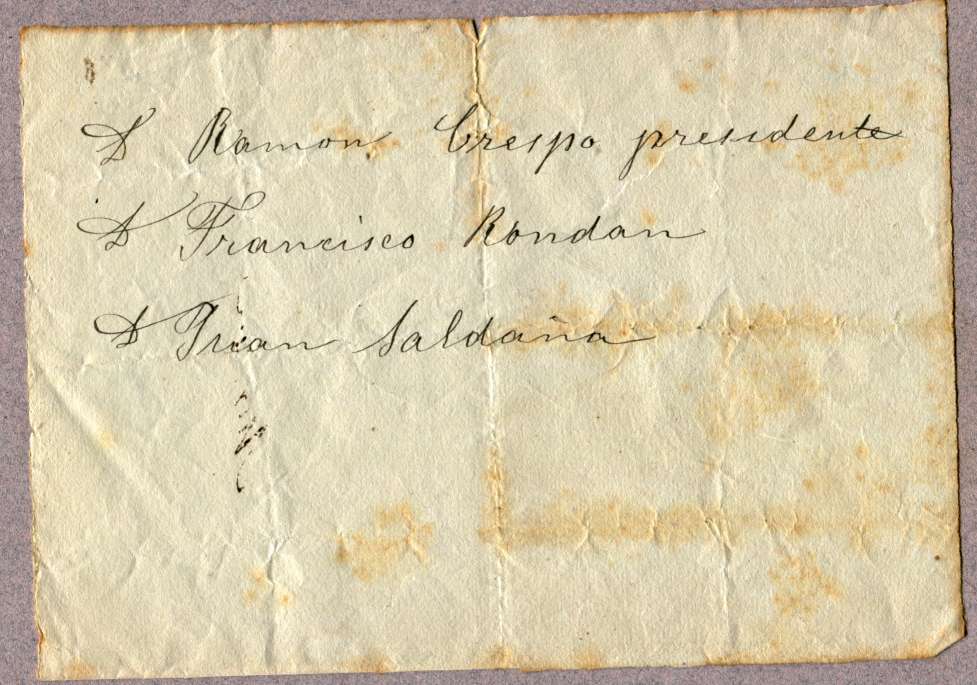 D Ramon Crespo presidente
D Francisco Rondan
D Juan Saldaña